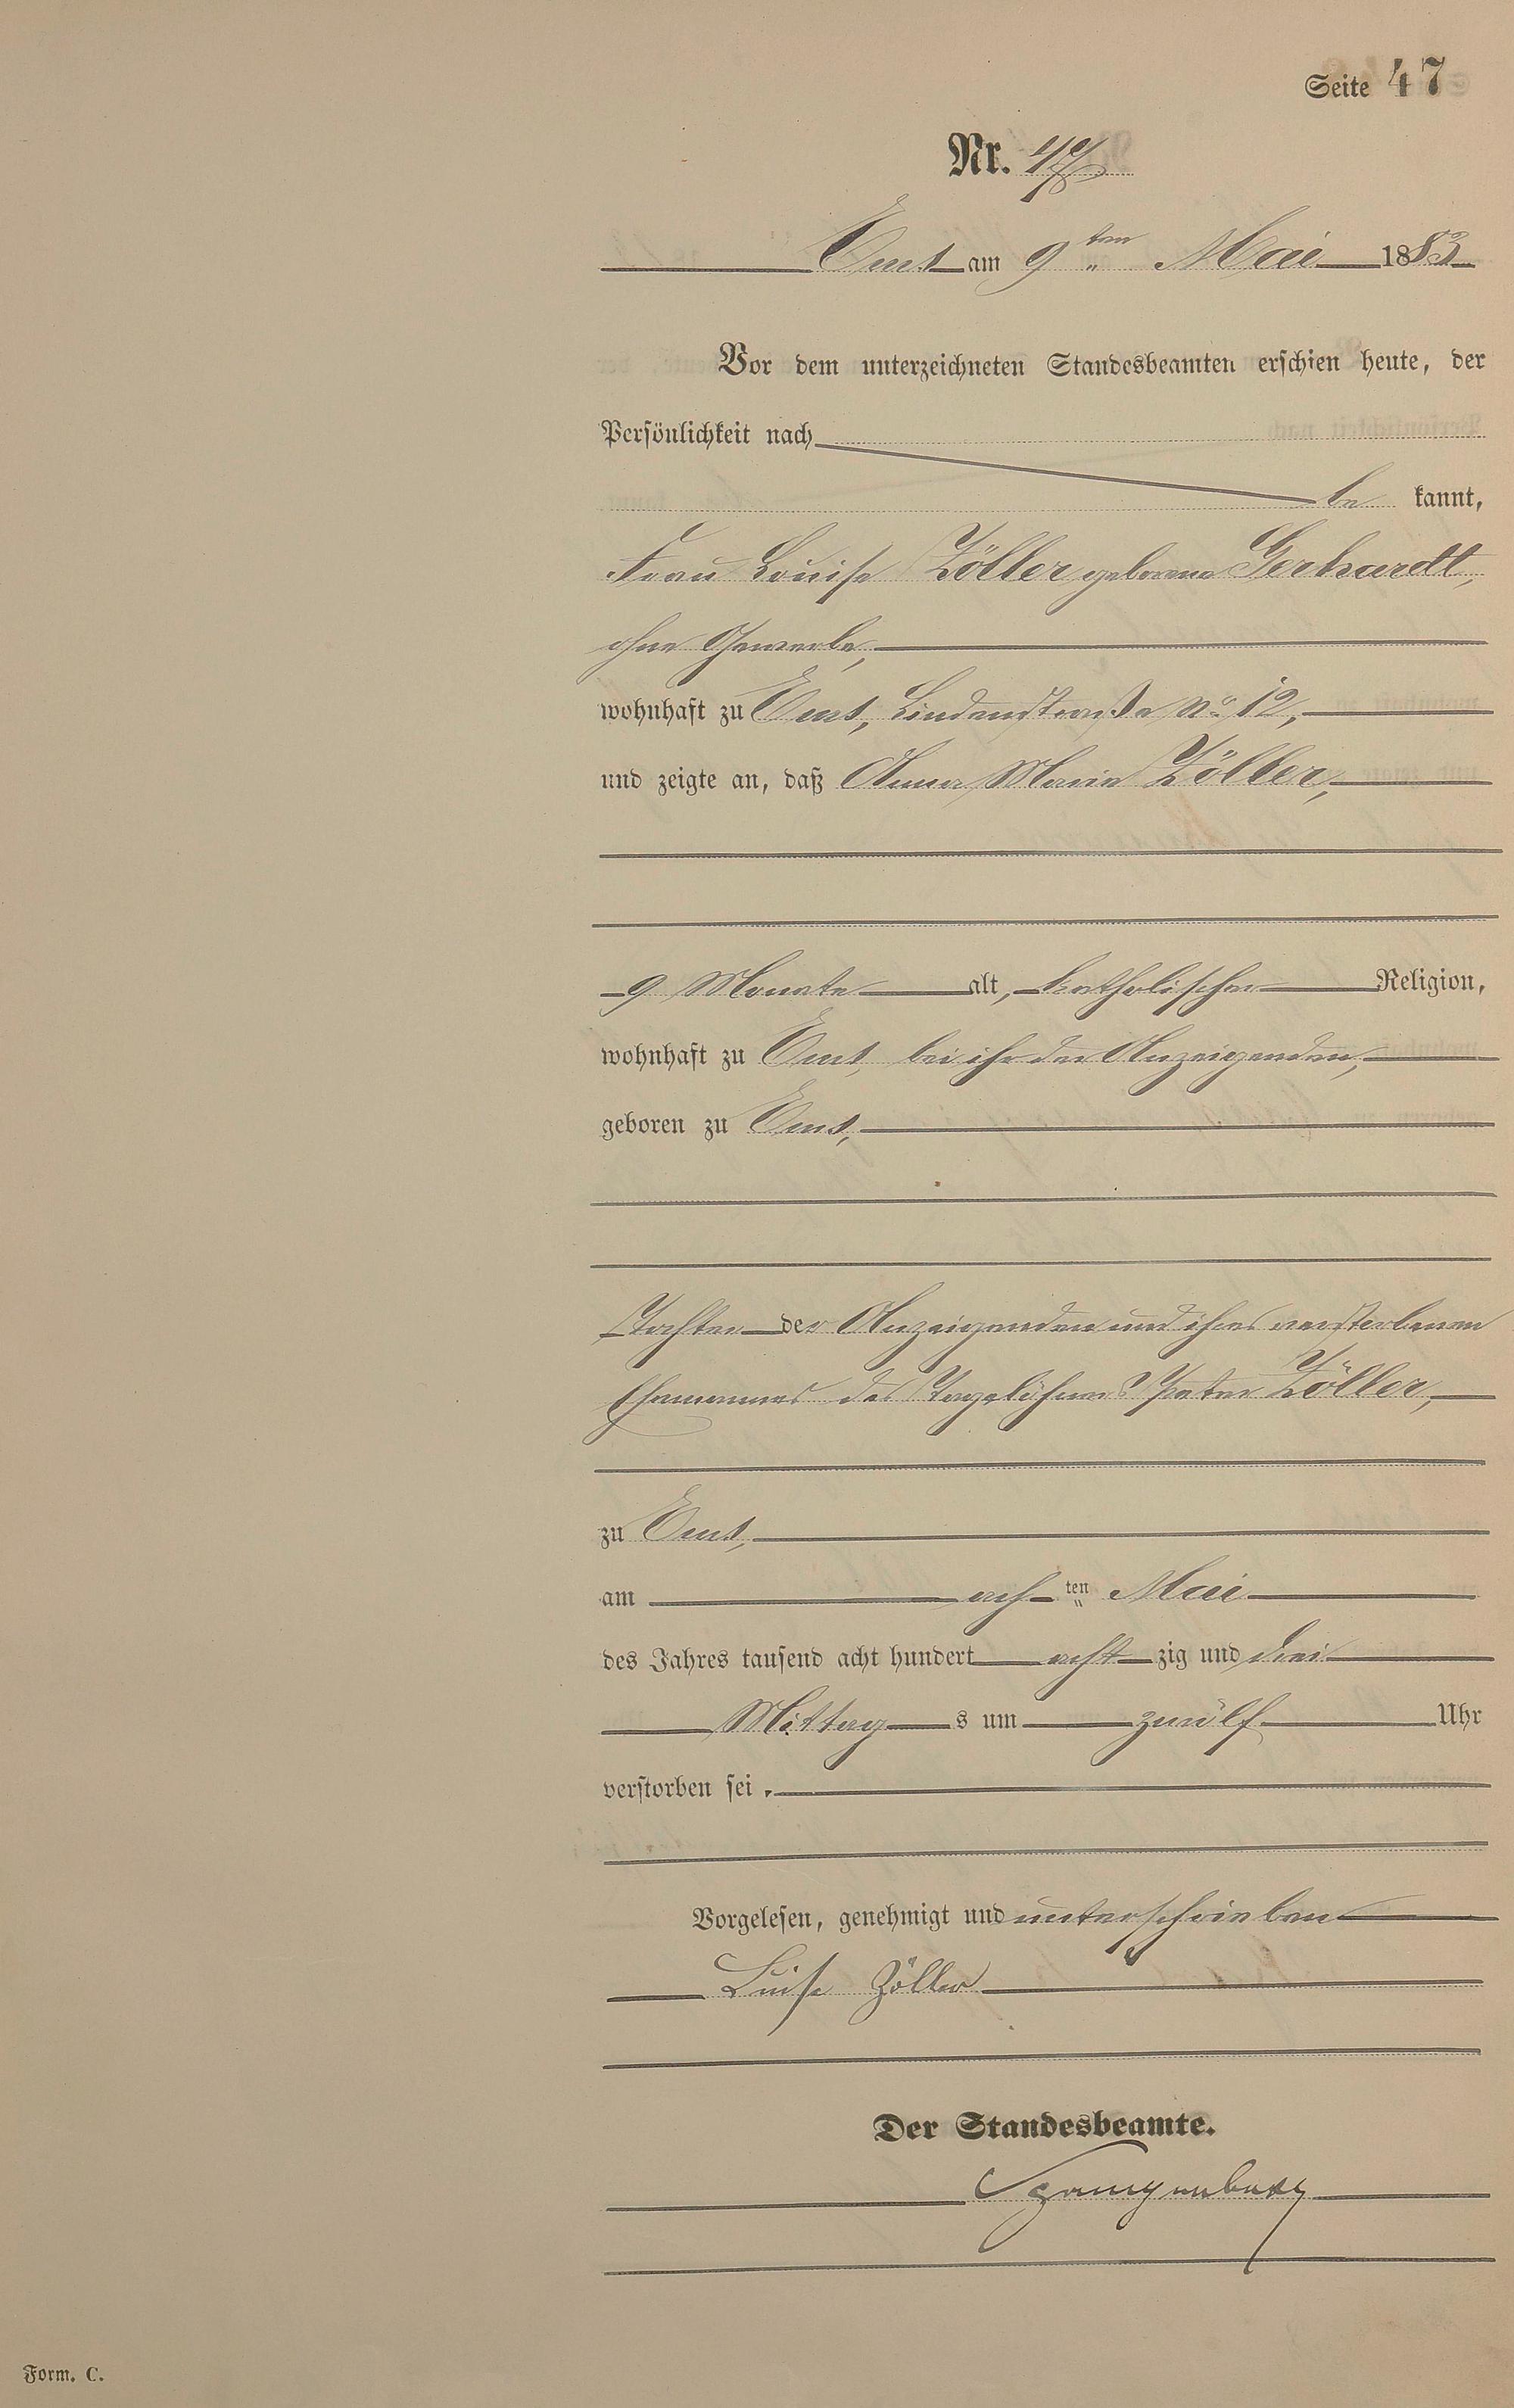 Seite 47
Nr. 47
Ems am 9ten Mai 1883
Vor dem unterzeichneten Standesbeamten erschien heute, der
Persönlichkeit nach
be kannt,
Frau Louise Zöller geborene Gerhardt,
ohne Gewerbe,
wohnhaft zu Ems, Lindenstraße No. 12,
und zeigte an, daß Anna Maria Zöller,
9 Monate alt, katholischer Religion,
wohnhaft zu Ems, bei ihr der Anzeigenden,
geboren zu Ems,
Tochter der Anzeigenden und ihres verstorbenen
Ehemannes des Tagelöhners Peter Zöller,
zu Ems,
am ach ten Mai
des Jahres tausend acht hundert acht zig und drei
Mittag s um zwölf Uhr
verstorben sei.
Vorgelesen, genehmigt und unterschrieben
Luise Zöller
Der Standesbeamte.
Spangenberg
Form. C.